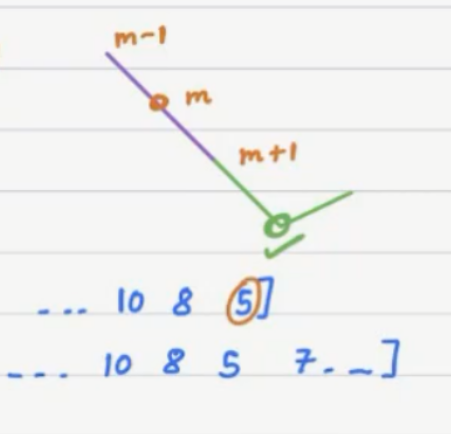 m-1
m
m+1
--- 10 8 5]
--- 10 8 5 7-_]